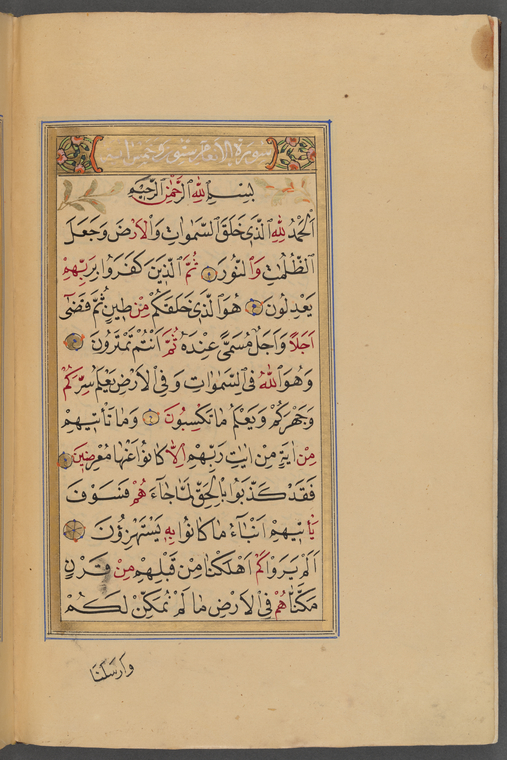 سورة الانعام
بِسْمِ اللهِ الرَّحْمٰنِ الرَّحِيمِ
اَلْحَمْدُ لِلّٰهِ الَّذِى خَلَقَ السَّمٰوَاتِ وَالْاَرْضَ وَجَعَلَ
الظُّلُمَاتِ وَالنُّورَ ثُمَّ الَّذِينَ كَفَرُوا بِرَبِّهِمْ
يَعْدِلُونَ هُوَ الَّذِى خَلَقَكُمْ مِنْ طِينٍ ثُمَّ قَضٰى
اَجَلًا وَاَجَلٌ مُسَمًّى عِنْدَهُ ثُمَّ اَنْتُمْ تَمْتَرُونَ
وَهُوَ اللهُ فِى السَّمٰوَاتِ وَفِى الْاَرْضِ يَعْلَمُ سِرَّكُمْ
وَجَهْرَكُمْ وَيَعْلَمُ مَا تَكْسِبُونَ وَمَا تَأْتِيهِمْ
مِنْ اٰيَةٍ مِنْ اٰيَاتِ رَبِّهِمْ اِلَّا كَانُوا عَنْهَا مُعْرِضِينَ
فَقَدْ كَذَّبُوا بِالْحَقِّ لَمَّا جَاءَهُمْ فَسَوْفَ
يَأْتِيهِمْ اَنْبَاءُ مَا كَانُوا بِهِ يَسْتَهْزِؤُنَ
اَلَمْ يَرَوْا كَمْ اَهْلَكْنَا مِنْ قَبْلِهِمْ مِنْ قَرْنٍ
مَكَّنَّاهُمْ فِى الْاَرْضِ مَا لَمْ نُمَكِّنْ لَكُمْ
وَارْسَلْنَا